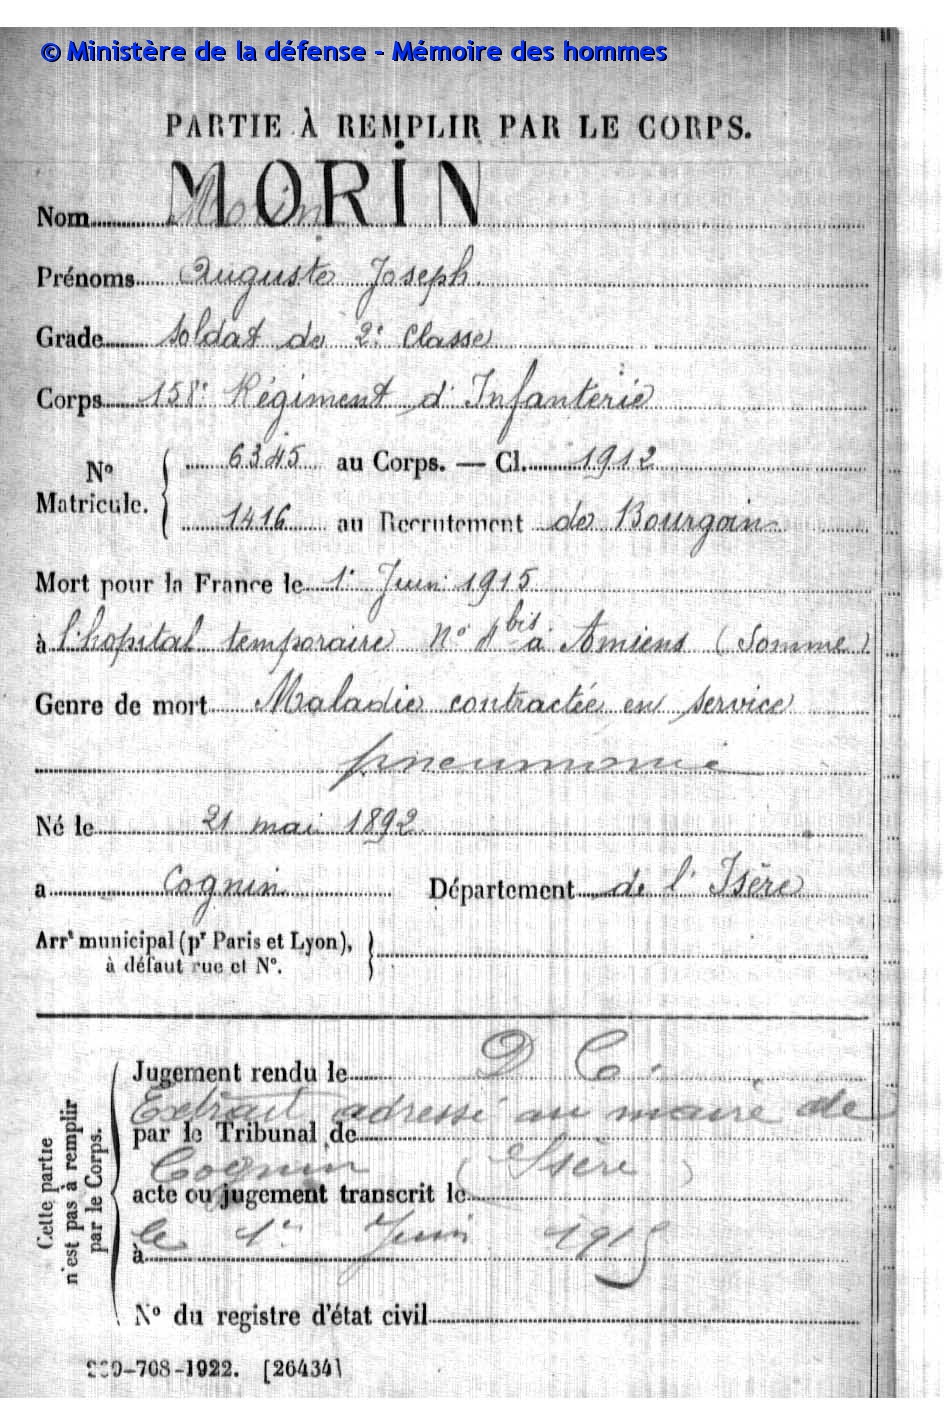 © Ministère de la défense - Mémoire des hommes
PARTIE À REMPLIR PAR LE CORPS.
MORIN
Nom Morin
Prénoms Auguste Joseph.
Grade Soldat de 2e Classe
Corps 158e Régiment d'Infanterie
No Matricule. { 6345 au Corps. — Cl. 1912
1416 au Recrutement de Bourgoin
Mort pour la France le 1er Juin 1915
à l'hopital temporaire No 1 bis à Amiens (Somme)
Genre de mort Maladie contractée en service
pneumonie
Né le 21 mai 1892
a Cognin Département de l'Isère
Arrt municipal (pr Paris et Lyon),
à défaut rue et No. }
Cette partie
n'est pas à remplir
par le Corps.
Jugement rendu le D C.
Extrait adressé au maire de
par le Tribunal de
Cognin (Isère)
acte ou jugement transcrit le
le 1er Juin 1915
à
No du registre d'état civil
-708-1922. [26434]